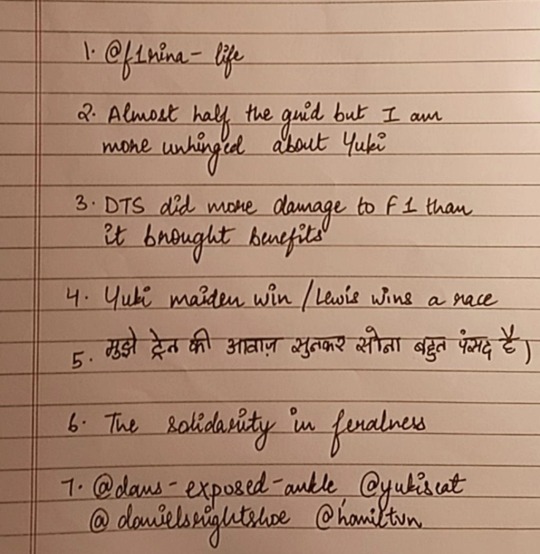 1. @f1nina - life
2. Almost half the grid but I am
more unhinged about Yuki
3. DTS did more damage to F1 than
it brought benefits
4. Yuki maiden win / Lewis wins a race
5. मुझे ट्रेन की आवाज़ सुनकर सोना बहुत पंसद है।
6. The solidarity in feralness
7. @dans-exposed-ankle @yukiscat
@danielsrightshoe @hamiltvn